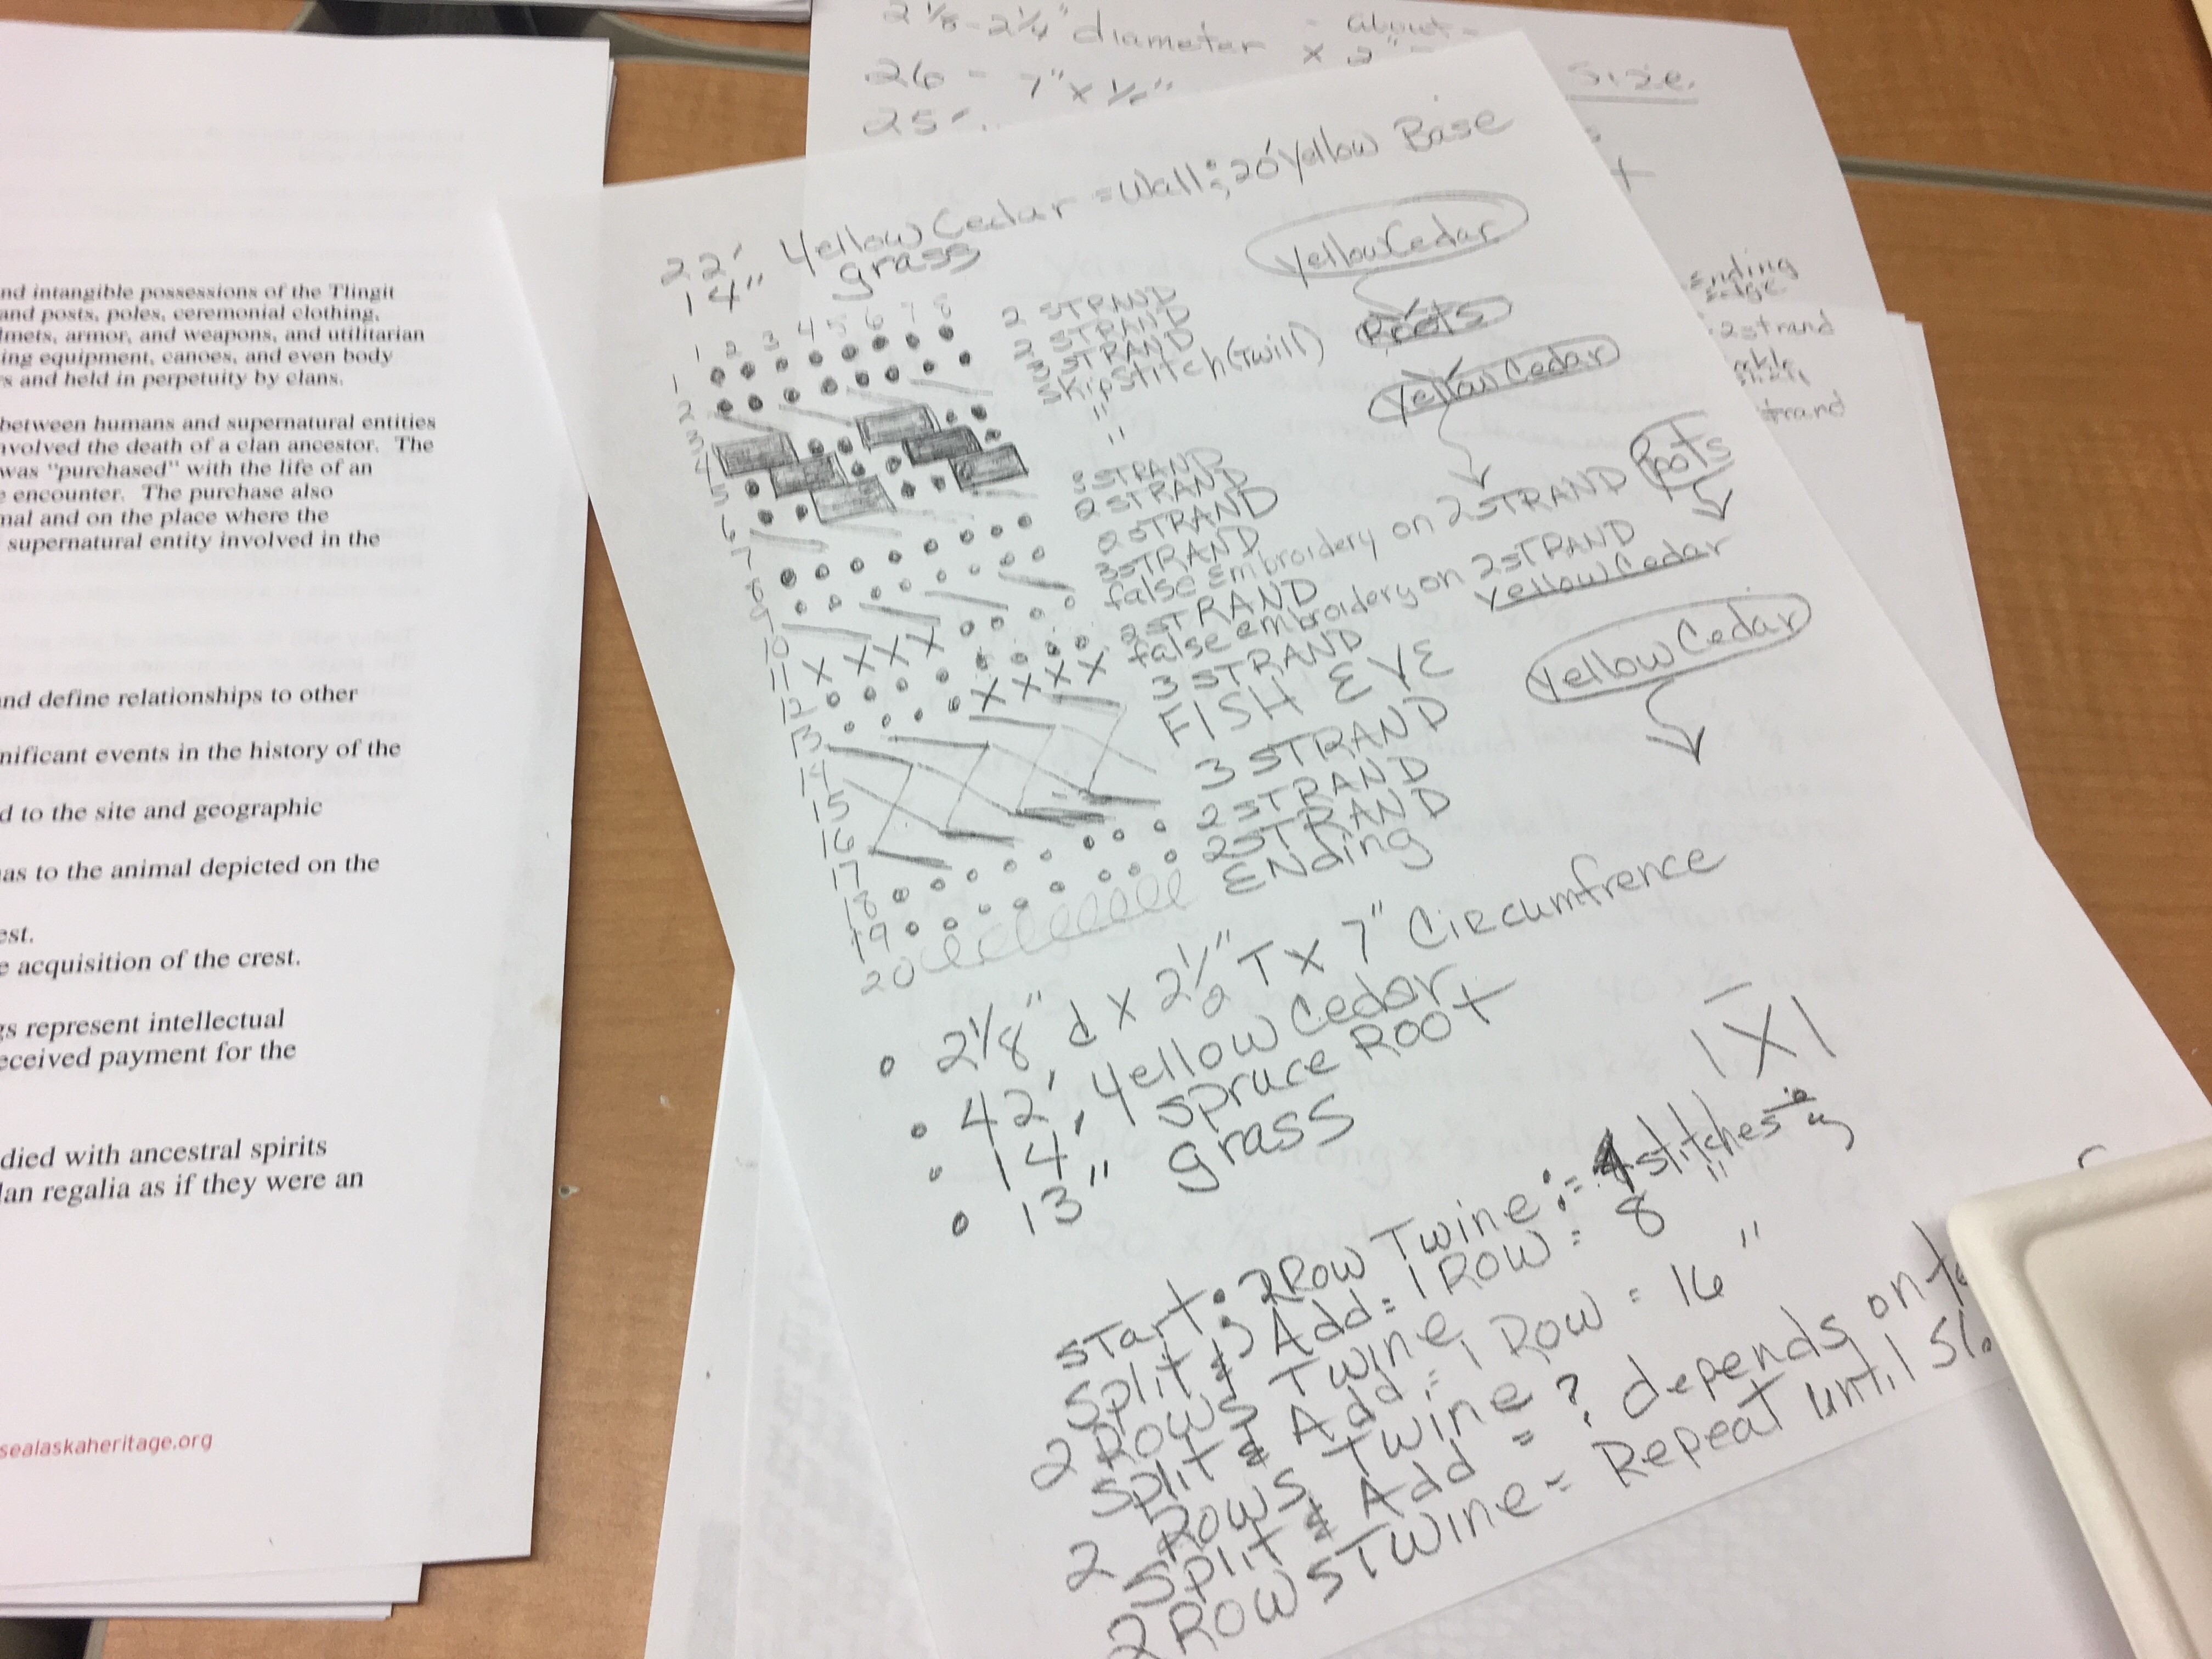 nd intangible possessions of the Tlingit
and posts, poles, ceremonial clothing,
lmets, armor, and weapons, and utilitarian
ing equipment, canoes, and even body
s and held in perpetuity by clans.
between humans and supernatural entities
nvolved the death of a clan ancestor. The
was "purchased" with the life of an
e encounter. The purchase also
mal and on the place where the
supernatural entity involved in the
nd define relationships to other
nificant events in the history of the
d to the site and geographic
as to the animal depicted on the
est.
e acquisition of the crest.
gs represent intellectual
eceived payment for the
died with ancestral spirits
lan regalia as if they were an
sealaskaheritage.org
2 1/8 - 2 1/4" diameter - about -
26 - 7" x 1/2" x 2" -
25
Size.
ending
edge
2 strand
strand
22' Yellow Cedar = Wall; 20' Yellow Base
14" grass
Yellow Cedar
1 2 3 4 5 6 7 8
1 2 STRAND
2 2 STRAND
3 3 STRAND
4 Skip stitch (Twill)
5 "
6 "
Roots
Yellow Cedar
7 3 STRAND
8 2 STRAND
9 2 STRAND
10 3 STRAND
11 false embroidery on 2 STRAND
Roots
12 2 STRAND
13 false embroidery on 2 STRAND
Yellow Cedar
14 3 STRAND
15 FISH EYE
16
17 3 STRAND
18 2 STRAND
19 2 STRAND
20 ENding
Yellow Cedar
• 2 1/8" d x 2 1/2" T x 7" Circumfrence
• 42' Yellow Cedar
• 14' Spruce Root
• 13" grass
|X|
Start: 2 Row Twine: = 4 stitches
Split & Add = 1 Row = 8 "
2 Rows Twine
Split & Add = 1 Row = 16 "
2 Rows Twine
Split & Add = ? depends on
2 Rows Twine = Repeat until